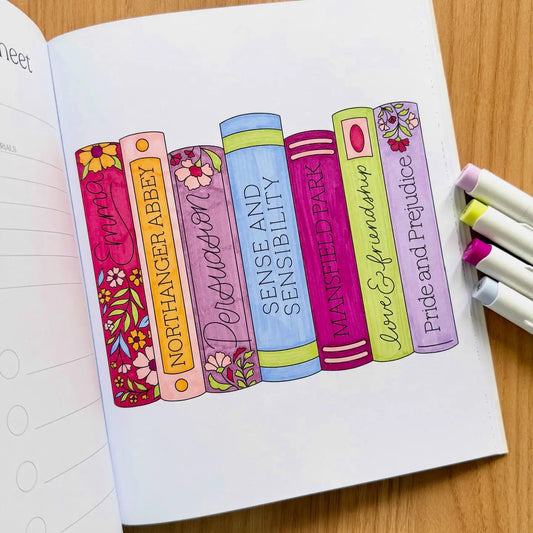 heet
RIALS
Emma
NORTHANGER ABBEY
Persuasion
SENSE AND
SENSIBILITY
MANSFIELD PARK
love & friendship
Pride and Prejudice